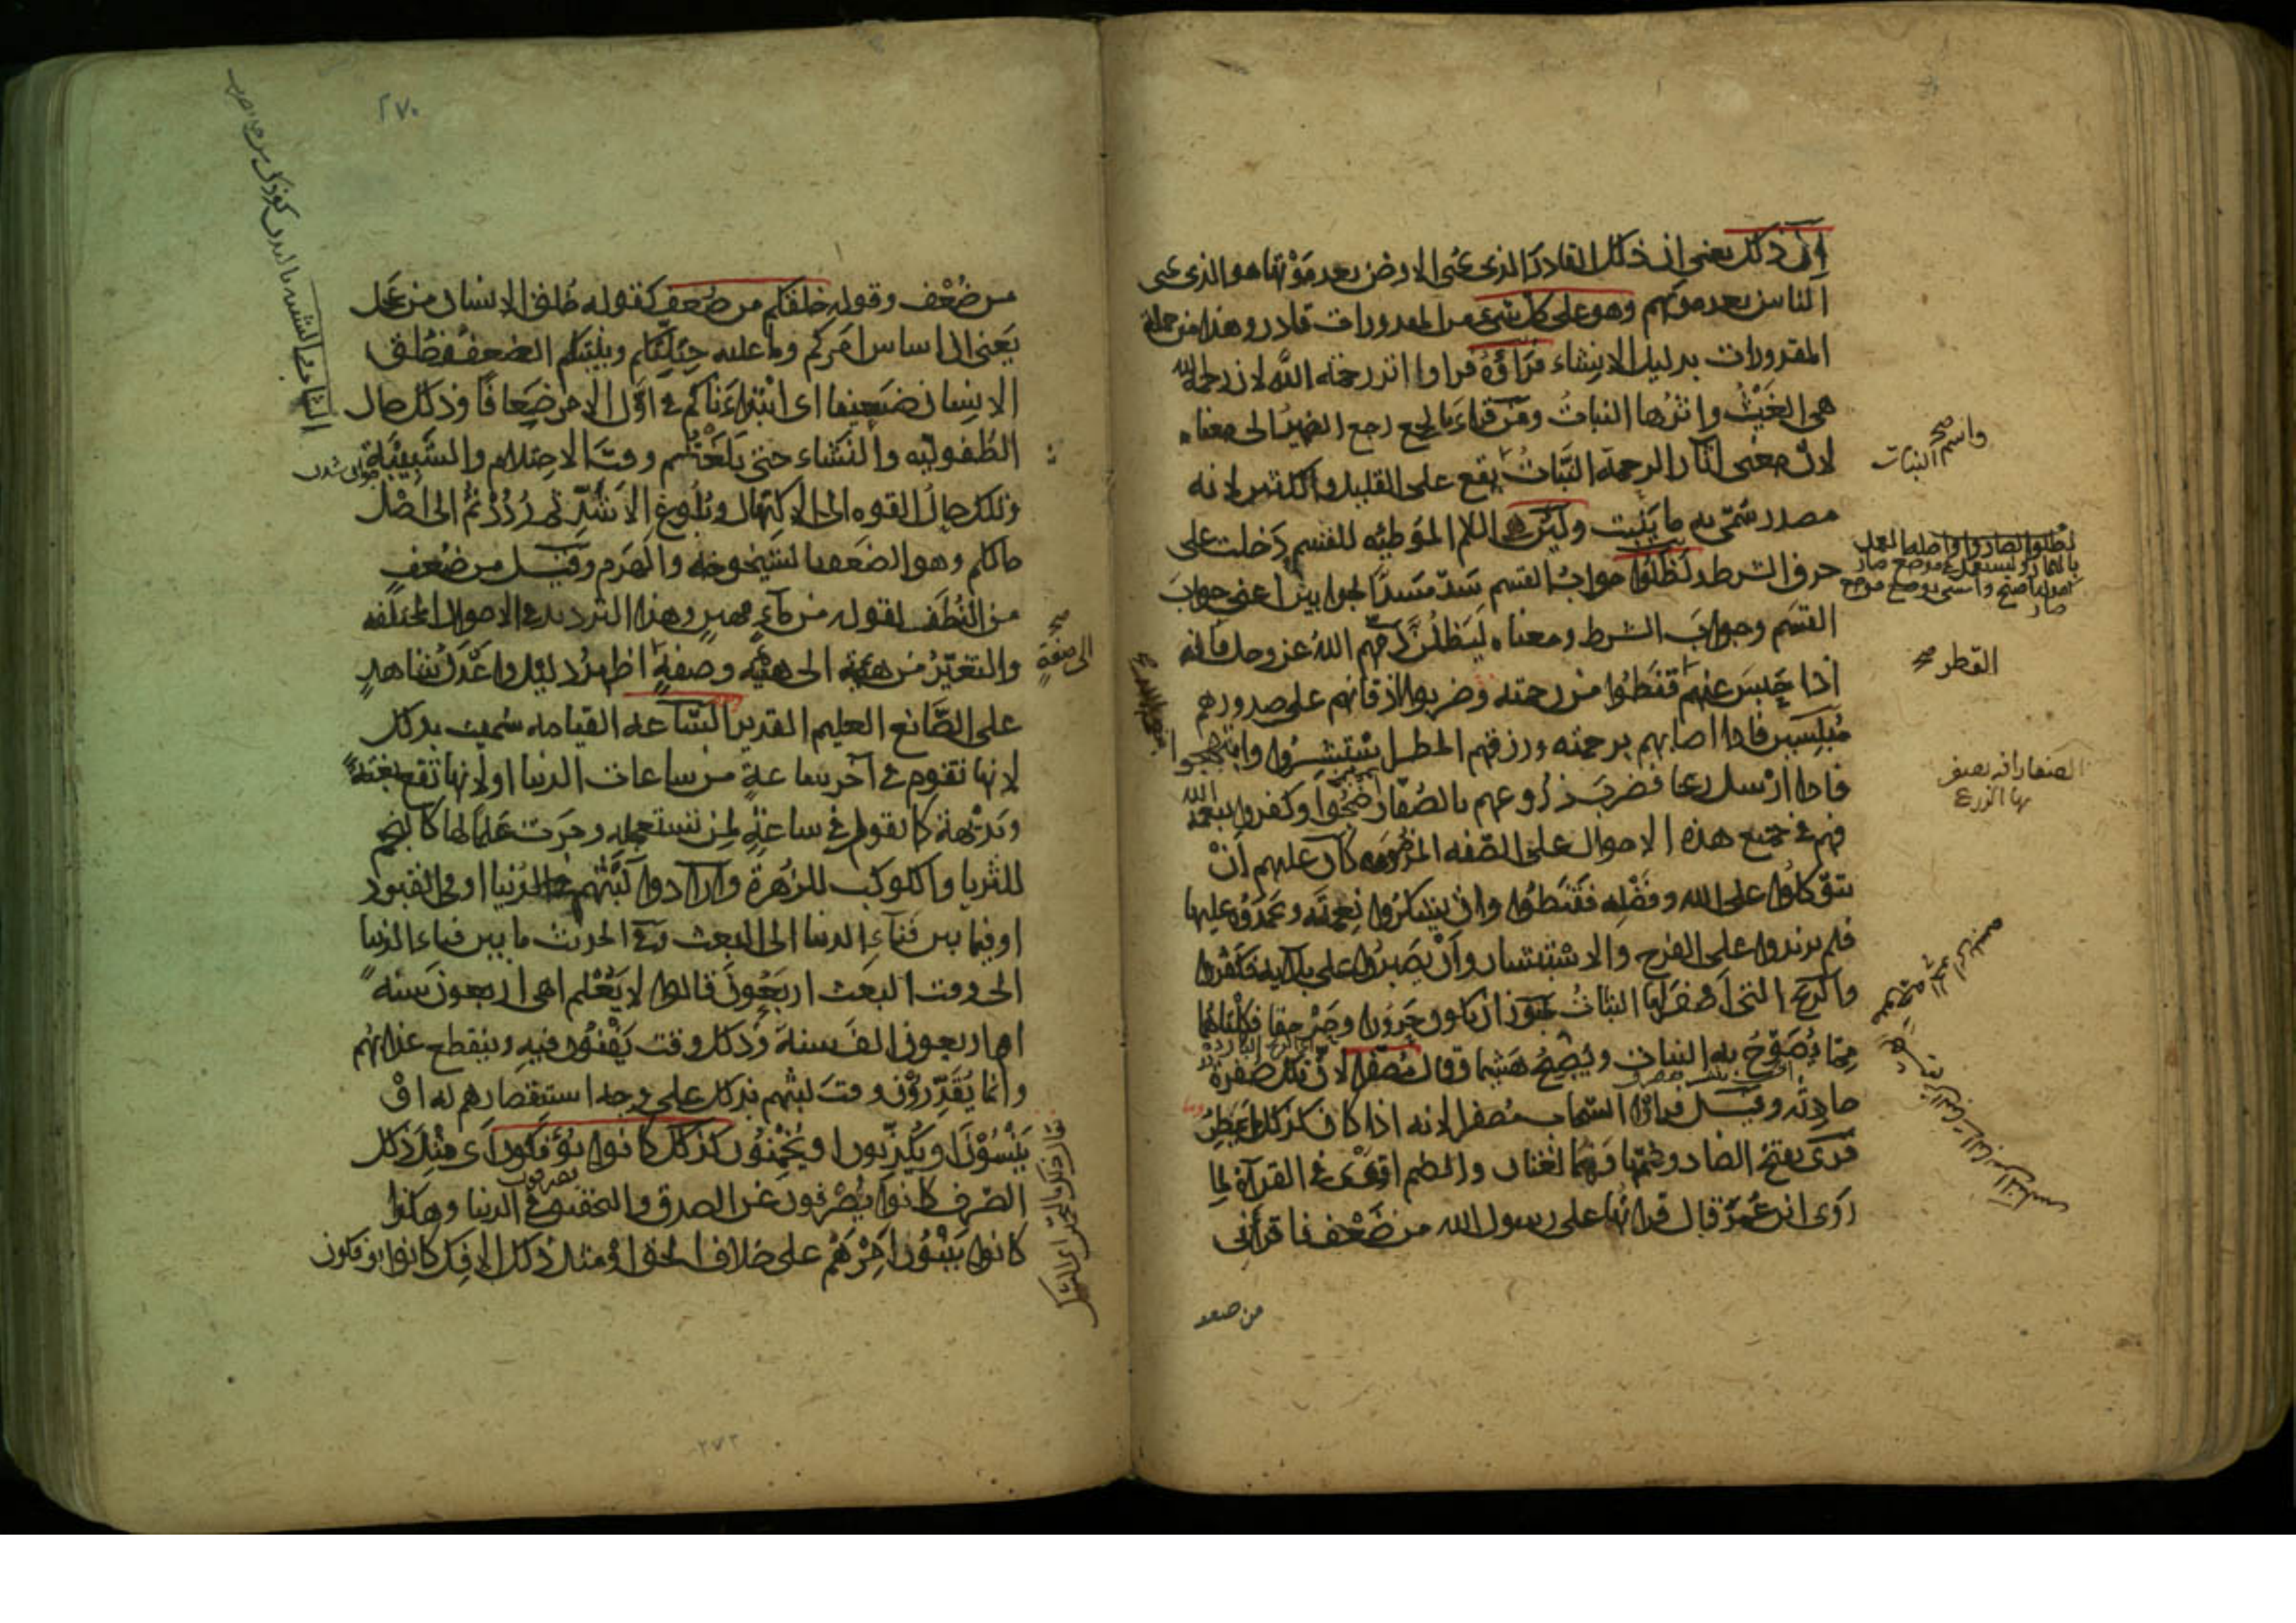 إن ذلك يعني إن ذلك القادر الذي يحيي الارض بعد موتها هو الذي يحيي
الناس بعد موتهم وهو على كل شيء من المقدورات قادر وهذا من جملة
المقدورات بدليل الانشاء فرأوه فراوا اثر رحمة الله لان رحمة الله
هي الغيث واثرها النبات ومن قراء بالجمع رجع الضمير الى معناه
لان معنى اثار الرحمة النبات واسم النبات يقع على القليل والكثير لانه
مصدر سمي به ما ينبت ولئن هي اللام الموطئه للقسم دخلت على
حرف الشرط ولظلوا جواب القسم سد مسد الجوابين اعني جواب
القسم وجواب الشرط ومعناه ليظلن ذمهم الله عز وجل فانه
اذا حبس عنهم القطر قنطوا من رحمته وضربوا اذقانهم على صدورهم
مبلسين فاذا اصابهم برحمته ورزقهم المطر استبشروا وابتهجوا
فاذا ارسل ريحا فضرب زروعهم بالصفار ضجوا وكفروا بنعمة الله
فهم في جميع هذه الاحوال على الصفه المذمومه كان عليهم ان
يتوكلوا على الله وفضله فقنطوا وان يشكروا نعمته ويحمدوه عليها
فلم يزيدوا على الفرح والاستبشار وان يصبروا على بلائه فكفروا
والريح التي اصفر لها النبات يجوز ان يكون حرورا وحرجفا فكلتاهما
مما يصوح به النبات ويصبح هشيما وقال مصفرا لان تلك صفرة
حادثه وقيل فراوا السحاب مصفرا لانه اذا كان كذلك لم يمطر
قرئ بفتح الضاد وضمها وهما لغتان والضم اقوى في القراءة لما
روى ابن عمر قال قراتها على رسول الله من ضعف فاقرأني
من ضعف
واسم النبات صح
القطر صح
الصفار افه تصفر
بها الزرع
٢٧٠
من ضعف وقوله خلقكم من ضعف كقوله خلق الانسان من عجل
يعني ان اساس امركم وما عليه جبلتكم وبنيتكم الضعف فخلق
الانسان ضعيفا اي ابتداناكم في اول الامر ضعافا وذلك حال
الطفوليه والنشاء حتى بلغتم وقت الاحتلام والشبيبة
وتلك حال القوه الى الاكتهال وبلوغ الاشد ثم رددتم الى اصل
حالكم وهو الضعف بالشيخوخه والهرم وقيل من ضعف
من النطف لقوله من ماء مهين وهذا الترديد في الاحوال المختلفه
والتغير من هيئة الى هيئه وصفة الى صفة اظهر دليل واعدل شاهد
على الصانع العليم القدير الساعه القيامه سميت بذلك
لانها تقوم في آخر ساعة من ساعات الدنيا او لانها تقع بغتة
وبديهة كما تقول في ساعة لمن تستعجله وجرت علما لها كالنجم
للثريا والكوكب للزهرة وارادوا لبثهم في الدنيا او في القبور
او فيما بين فناء الدنيا الى البعث وفي الحديث ما بين فناء الدنيا
الى وقت البعث اربعون قالوا لا يعلم اهي اربعون سنة
ام اربعون الف سنة وذلك وقت يفنون فيه وينقطع عذابهم
وانما يقدرون وقت لبثهم بذلك على وجه استقصارهم له او
ينسون او يكذبون او يخمنون كذلك كانوا يؤفكون اي مثل ذلك
الصرف كانوا يصرفون عن الصدق والتحقيق في الدنيا وهكذا
كانوا يبنون امرهم على خلاف الحق او مثل ذلك الافك كانوا يؤفكون
الى صفة صح
٢٧٢